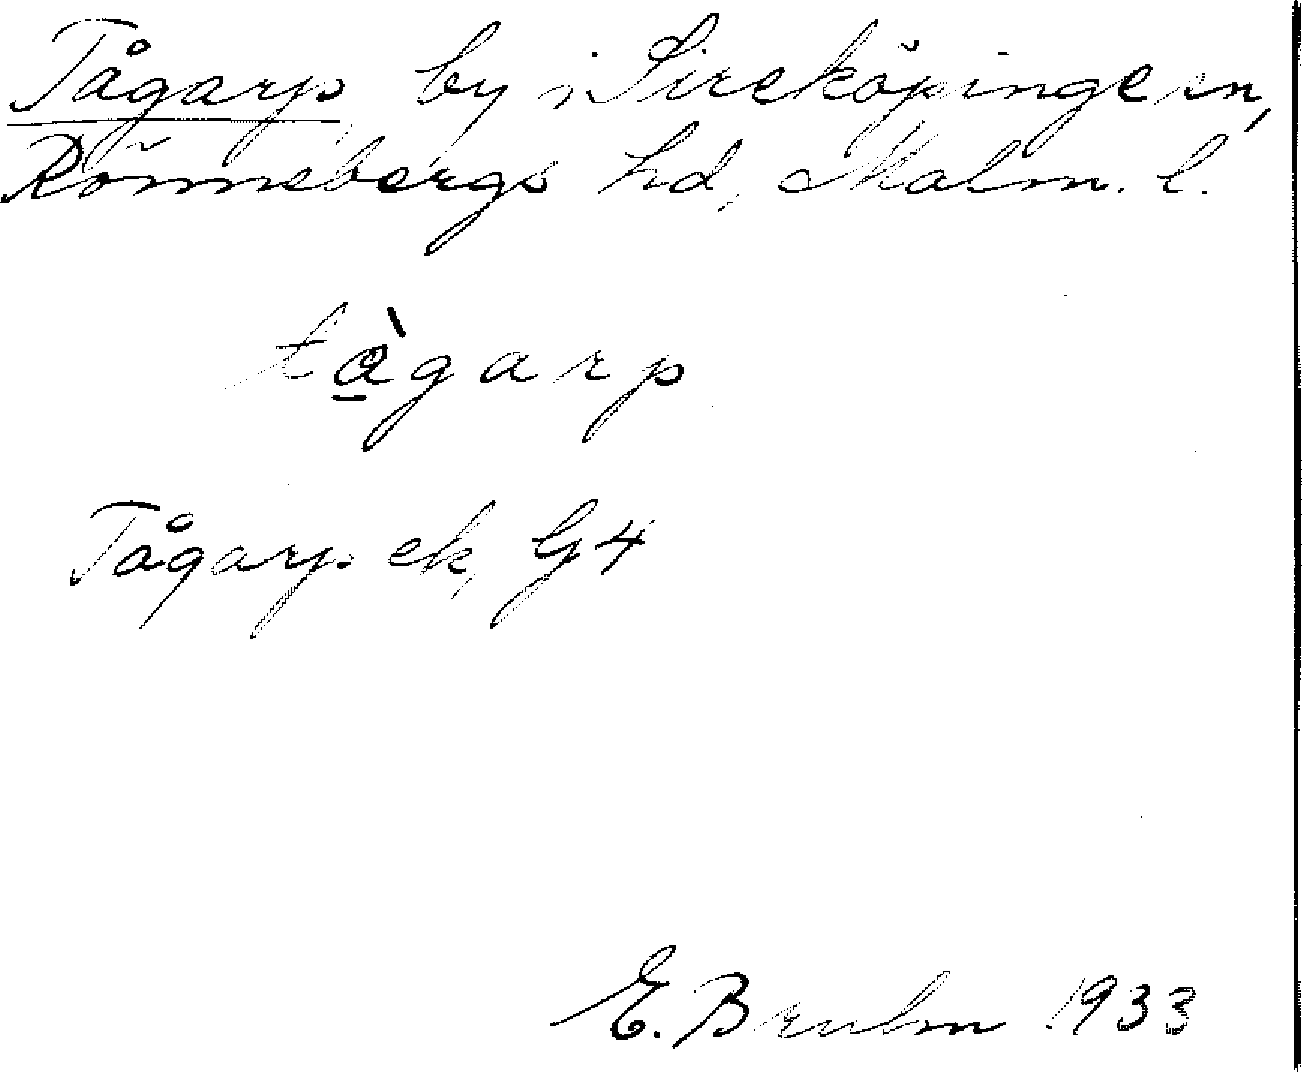 Tågarp by i Sireköpinge sn,
Rönnebergs hd, Malm. l.
tàgarp
Tågarp ek, G4
E. Bruhn 1933